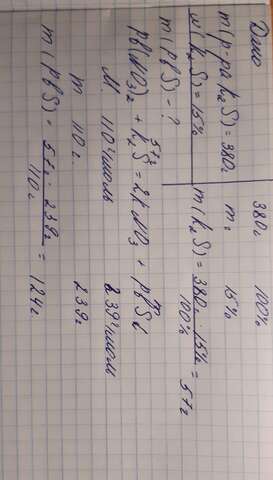 Дано
m(р-ра K₂S)=380г
w(K₂S)=15%
m(PbS)-?
380г 100%
m г 15%
m(K₂S)= 380г · 15% / 100% = 57г
57г m
Pb(NO₃)₂ + K₂S = 2KNO₃ + PbS↓
M 110г/моль 239г/моль
m 110г. 239г
m(PbS)= 57г · 239г / 110г = 124г.